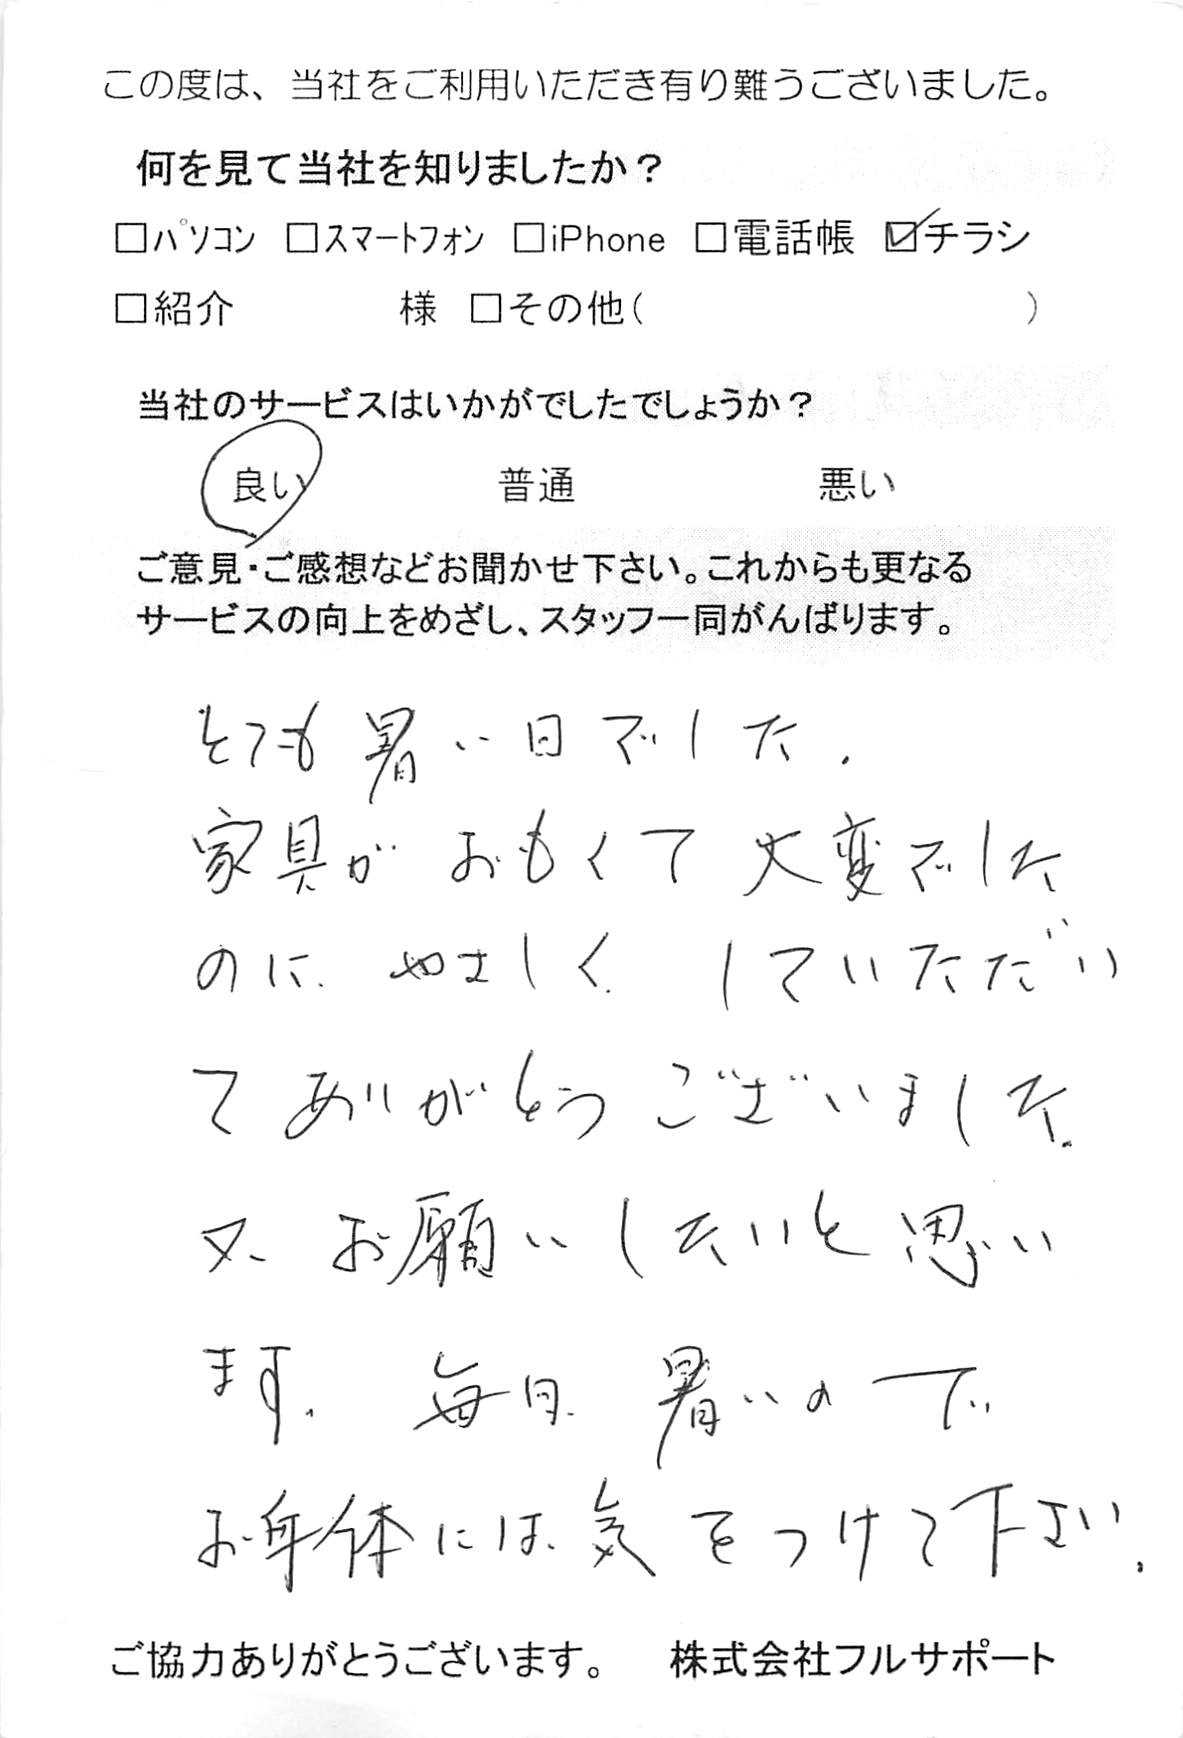 この度は、当社をご利用いただき有り難うございました。
何を見て当社を知りましたか？
□パソコン □スマートフォン □iPhone □電話帳 ☑チラシ
□紹介 様 □その他( )
当社のサービスはいかがでしたでしょうか？
良い 普通 悪い
ご意見・ご感想などお聞かせ下さい。これからも更なる
サービスの向上をめざし、スタッフ一同がんばります。
とても暑い日でした.
家具が おもくて 大変でした
のに. やさしく. していただい
て ありがとう ございました.
又 お願いしたいと思い
ます. 毎日. 暑いので
お身体には.気をつけて下さい.
ご協力ありがとうございます。 株式会社フルサポート